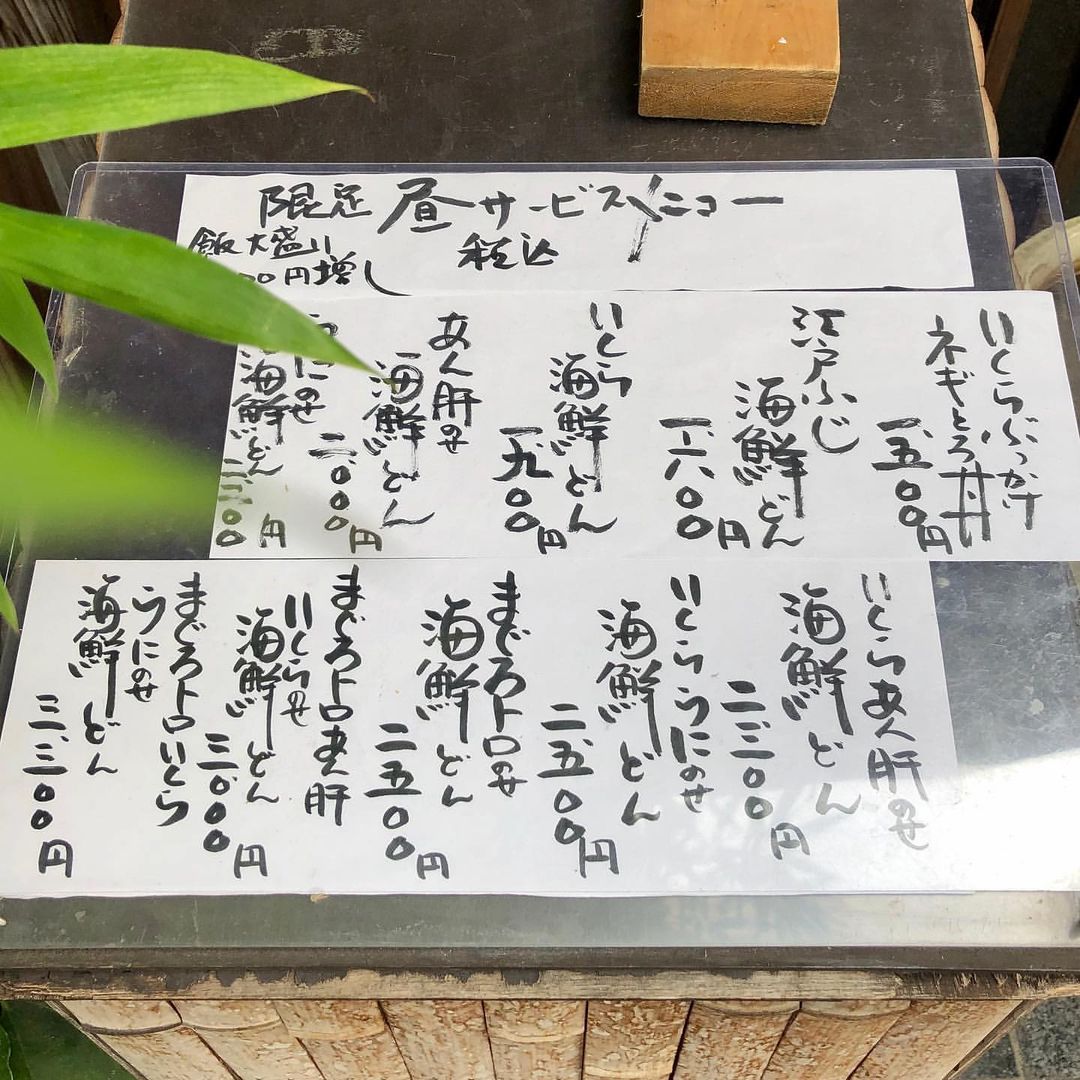 限定 昼サービスメニュー
税込
飯大盛り
円増し
いくらぶっかけ
ネギとろ丼
一、五〇〇円
江戸ふじ
海鮮どん
一、六〇〇円
いくら
海鮮どん
一、九〇〇円
あん肝のせ
海鮮どん
二、〇〇〇円
にのせ
海鮮どん
〇〇円
いくらあん肝のせ
海鮮どん
二、三〇〇円
いくらうにのせ
海鮮どん
二、五〇〇円
まぐろトロのせ
海鮮どん
二、五〇〇円
まぐろトロあん肝
いくらのせ
海鮮どん
三、〇〇〇円
まぐろトロいくら
うにのせ
海鮮どん
三、三〇〇円